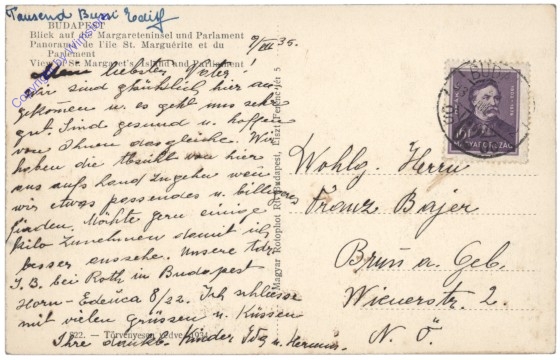 Tausend Bussi Edith
BUDAPEST
Blick auf die Margareteninsel und Parlament
Panorama de l'île St. Marguérite et du
Parlement
View of St. Margaret's Island and Parliament
9/VII 35.
Mein liebster Vater!
Wir sind glücklich hier an
gekommen u. es geht uns sehr
gut. Sind gesund u. hoffen
von Ihnen das gleiche. Wir
haben die Absicht von hier
aus aufs Land zu gehen wen
wir etwas passendes u. billigeres
finden. Möchte gern einige
Kilo zunehmen damit ich
besser aussehe. Unsere Adr.
I. B. bei Roth in Budapest
8/22. Ich schliesse
mit vielen grüssen u. Küssen
Ihre dankb. Kinder u.
822. — Törvényesen védve 1934
Magyar Rotophot Rt. Budapest, Liszt Ferenc-tér 5
MAGYARORSZÁG
Wohlg. Herrn
Franz Bajer
Brun a. Geb.
Wienerstr. 2.
N. Ö.